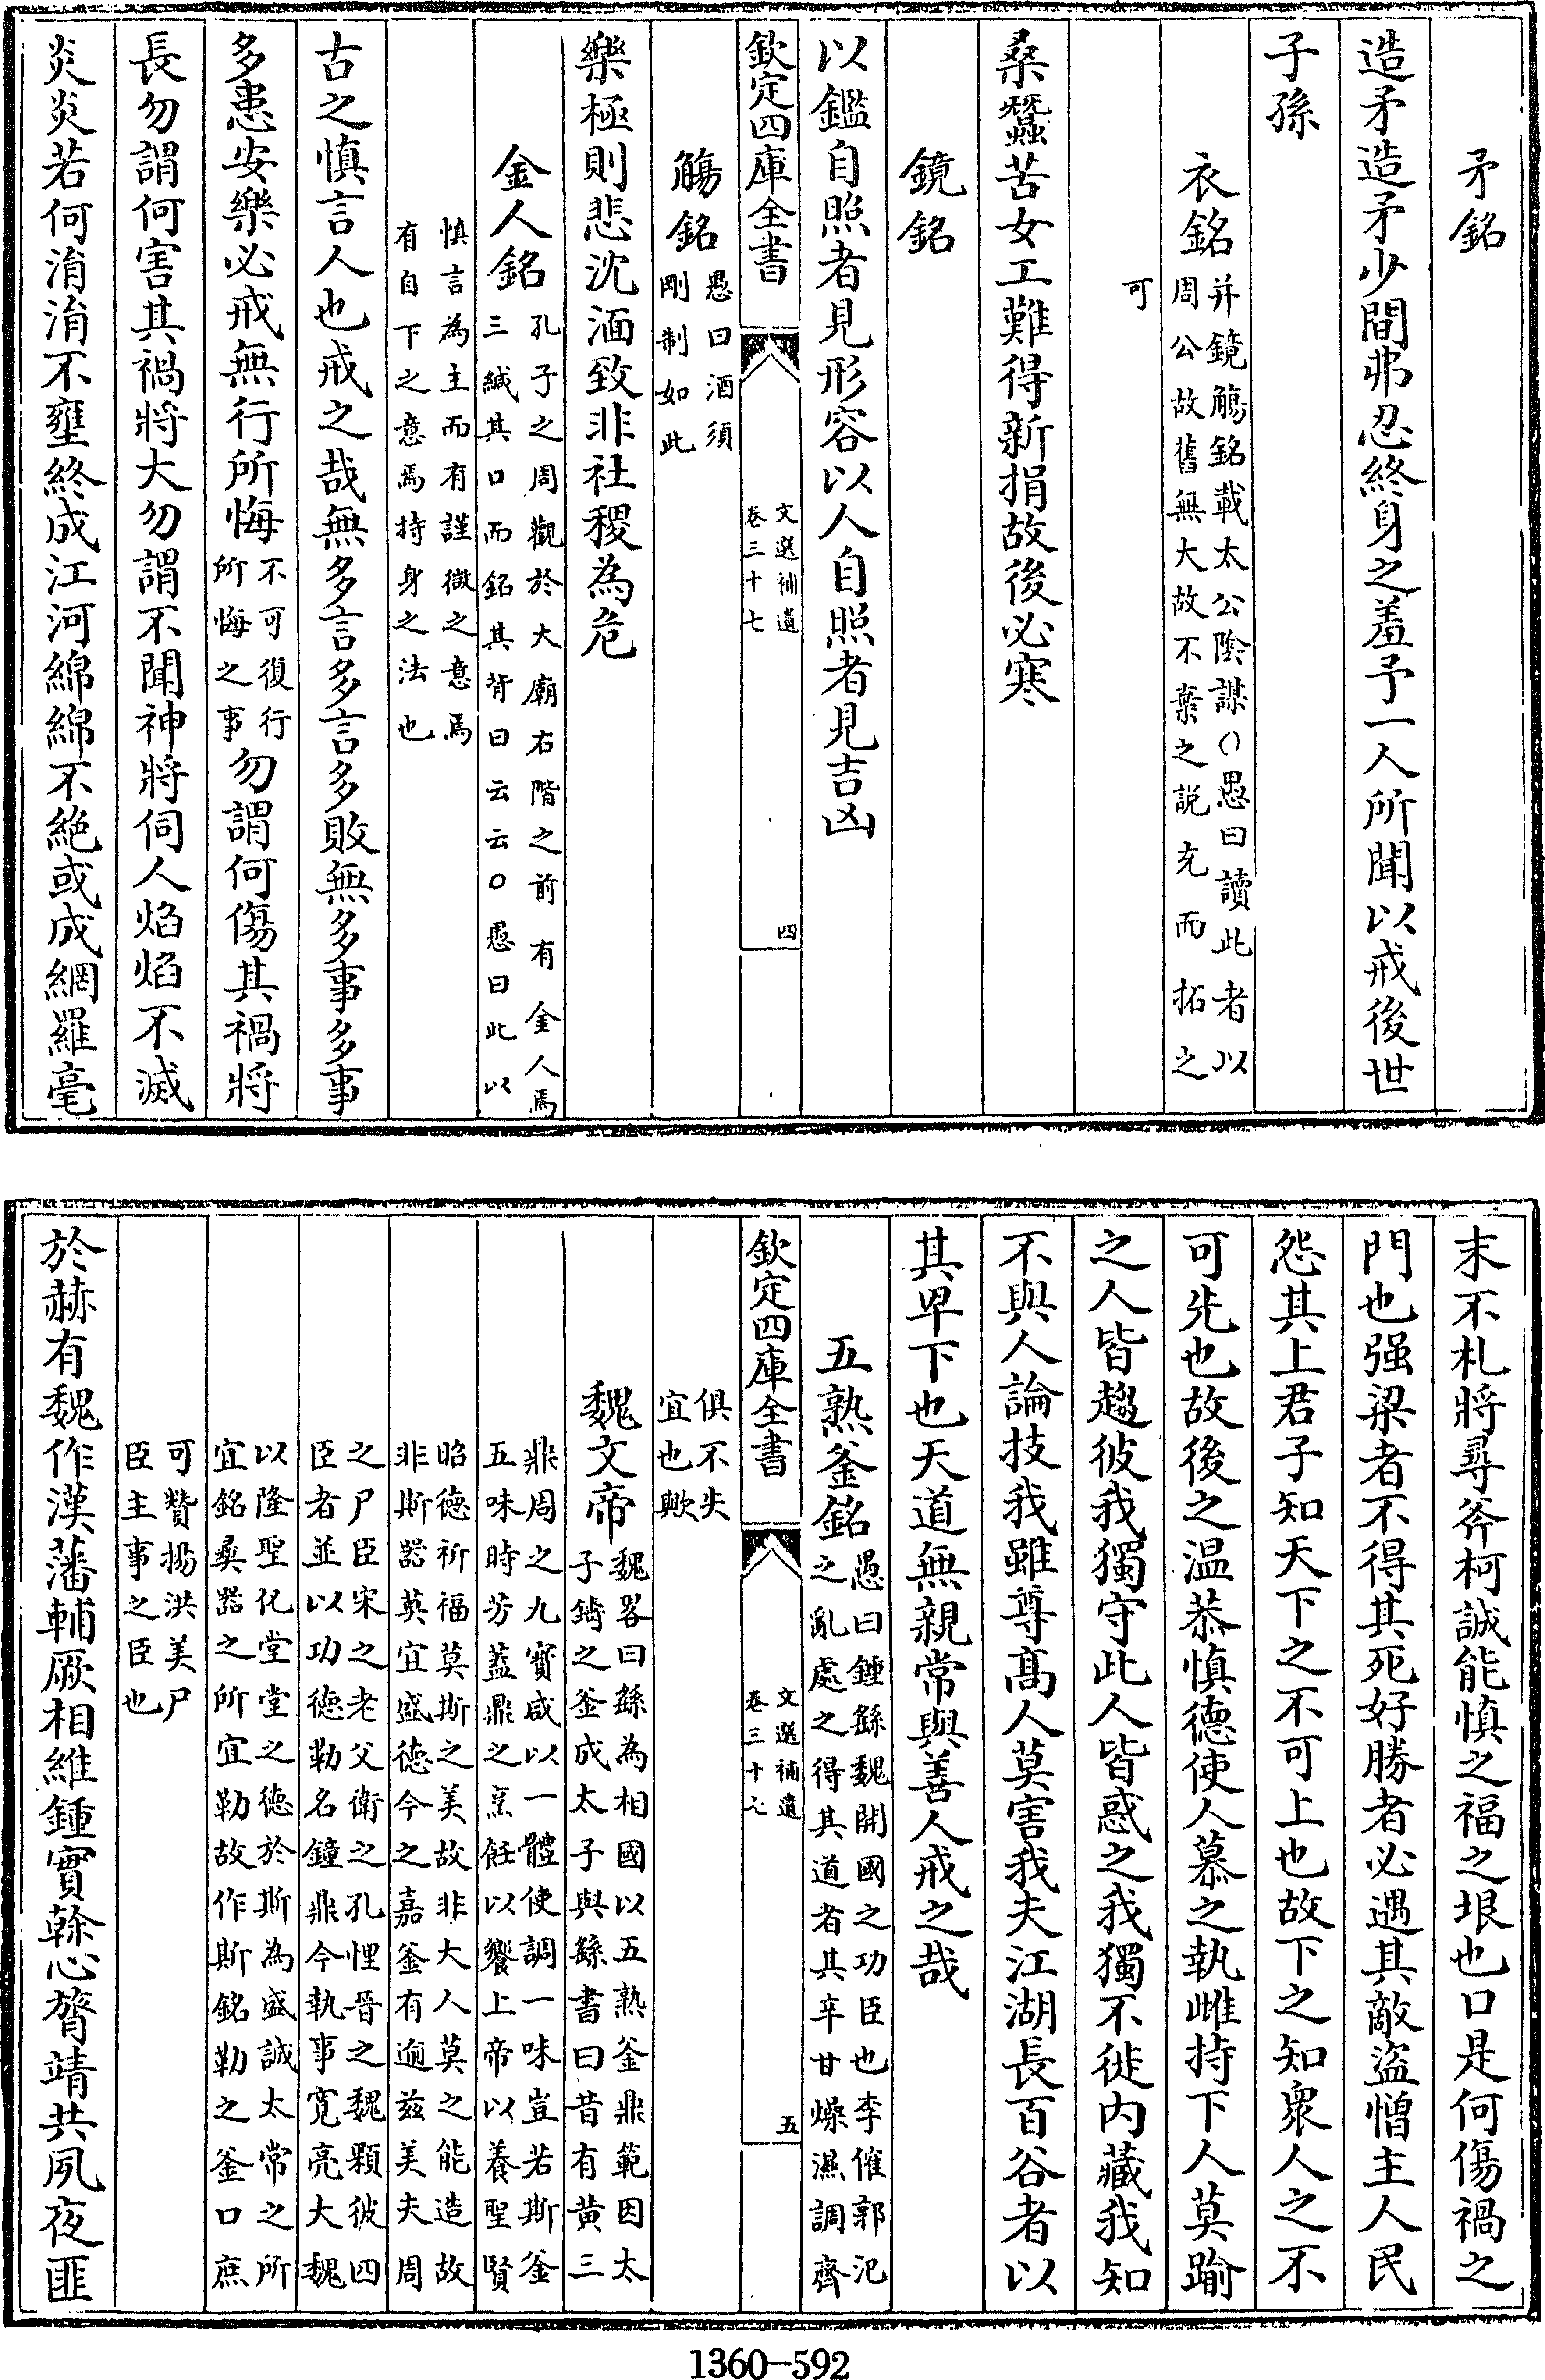 矛銘
造矛造矛少間弗忍終身之羞予一人所聞以戒後世
子孫
衣銘并鏡觴銘載太公陰謀〇愚曰讀此者以
周公故舊無大故不棄之説充而拓之
可
桑蠶苦女工難得新捐故後必寒
鏡銘
以鑑自照者見形容以人自照者見吉凶
欽定四庫全書
文選補遺
卷三十七
四
觴銘愚曰酒須
剛制如此
樂極則悲沈湎致非社稷為危
金人銘孔子之周觀於大廟右階之前有金人焉
三緘其口而銘其背曰云云〇愚曰此以
慎言為主而有謹微之意焉
有自下之意焉持身之法也
古之慎言人也戒之哉無多言多言多敗無多事多事
多患安樂必戒無行所悔不可復行
所悔之事勿謂何傷其禍將
長勿謂何害其禍將大勿謂不聞神將伺人焰焰不滅
炎炎若何涓涓不壅終成江河綿綿不絶或成網羅毫
末不札將尋斧柯誠能慎之福之垠也口是何傷禍之
門也强梁者不得其死好勝者必遇其敵盗憎主人民
怨其上君子知天下之不可上也故下之知衆人之不
可先也故後之温恭慎德使人慕之執雌持下人莫踰
之人皆趨彼我獨守此人皆惑之我獨不徙内藏我知
不與人論技我雖尊高人莫害我夫江湖長百谷者以
其卑下也天道無親常與善人戒之哉
五熟釜銘愚曰鍾繇魏開國之功臣也李傕郭汜
之亂處之得其道者其辛甘燥濕調齊
欽定四庫全書
文選補遺
卷三十七
五
俱不失
宜也歟
魏文帝魏畧曰繇為相國以五熟釜鼎範因太
子鑄之釜成太子與繇書曰昔有黄三
鼎周之九寳咸以一體使調一味豈若斯釜
五味時芳蓋鼎之烹飪以饗上帝以養聖賢
昭德祈福莫斯之美故非大人莫之能造故
非斯器莫宜盛德今之嘉釜有逾兹美夫周
之尸臣宋之老父衛之孔悝晉之魏顆彼四
臣者並以功德勒名鐘鼎今執事寛亮大魏
以隆聖化堂堂之德於斯為盛誠太常之所
宜銘彝器之所宜勒故作斯銘勒之釜口庶
可贊揚洪美尸
臣主事之臣也
於赫有魏作漢藩輔厥相維鍾實幹心膂靖共夙夜匪
1360-592